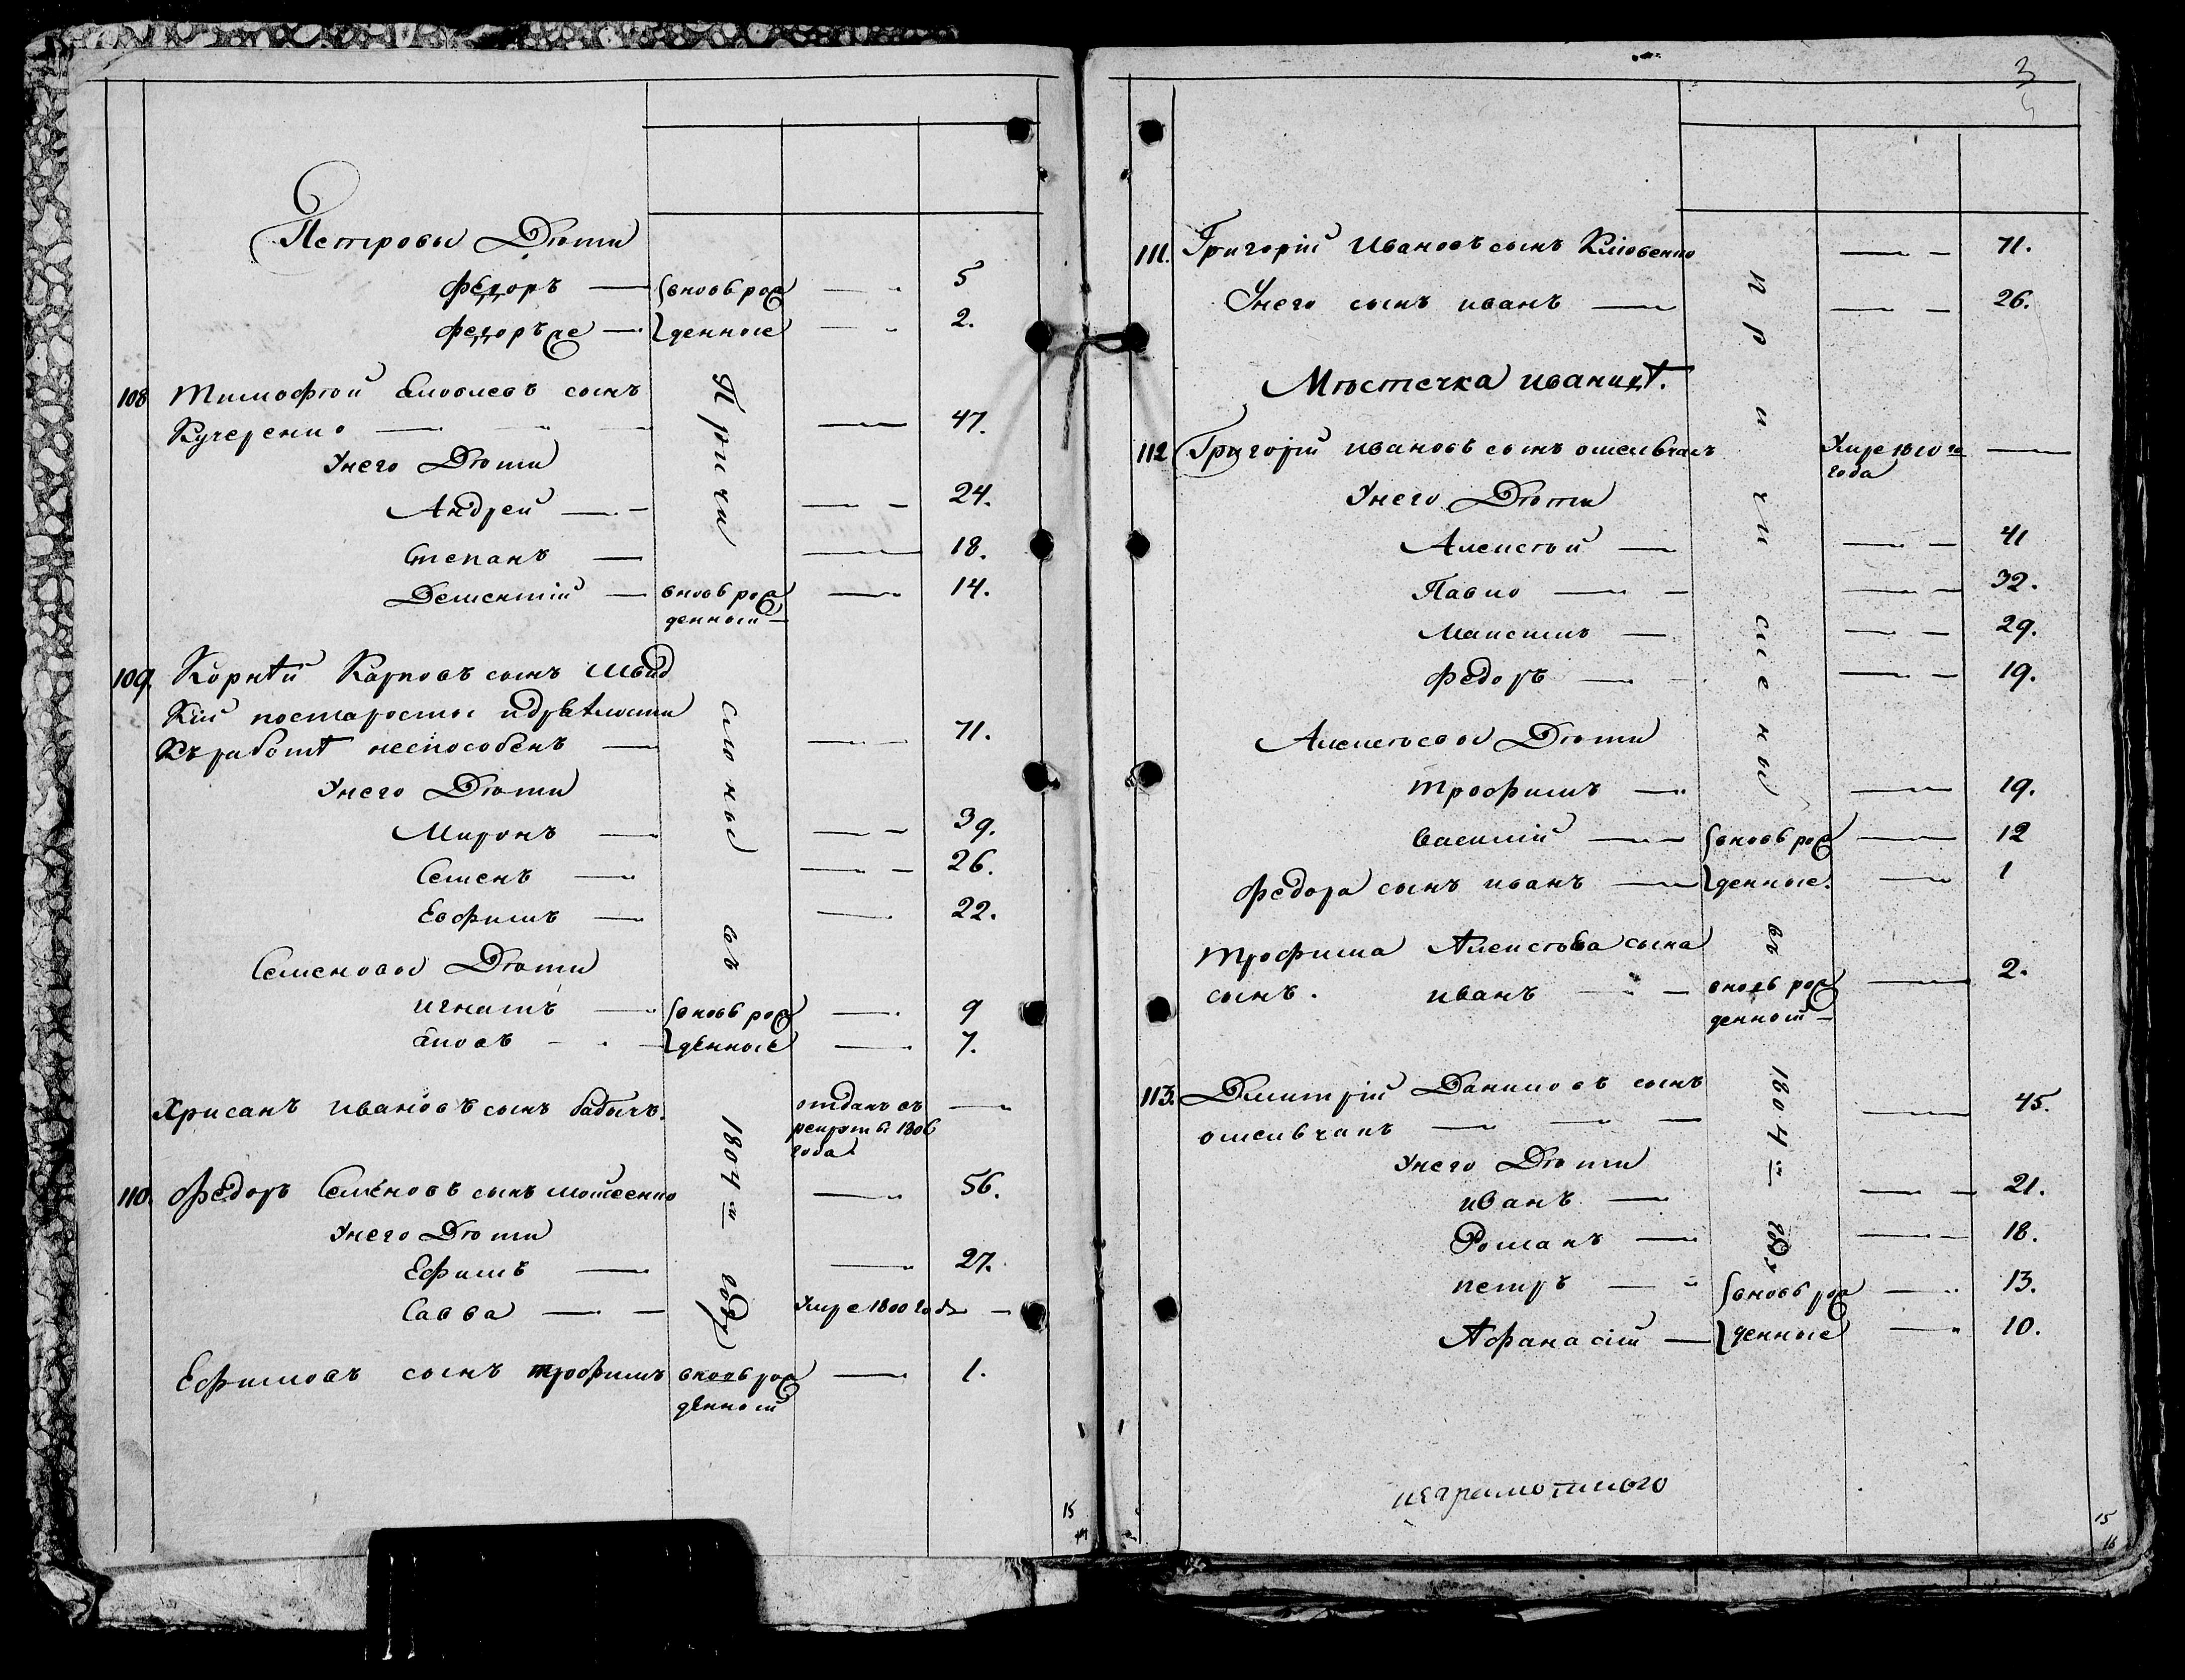 Петровы Дѣти
Федоръ — вновь рож — 5
Федоръ же — денные — 2.
108 Тимофѣй Яковлевъ сынъ
Кучеренко — 47.
У него Дѣти
Андрей — 24.
Степанъ — 18.
Дементий — вновь рож — 14.
денной
109. Корнѣй Карповъ сынъ Швид
кій постарости и дрѣхлости
Къ работѣ неспособенъ — 71.
У него Дѣти
Миронъ — 39.
Семенъ — 26.
Евфимъ — 22.
Семеновы Дѣти
игнатъ — вновь рож — 9
Яковъ — денные — 7.
Хрисанъ ивановъ сынъ бабичъ. отданъ въ —
рекруты 1806
года
110. Федоръ Семеновъ сынъ мойсеенко — 56.
У него Дѣти
Ефимъ — 27.
Савва — Умре 1800 года —
Ефимовъ сынъ трофимъ вновь рож — 1.
денной
Причислены въ 1804м году
15
3
111. Григорій Ивановъ сынъ — 71.
У него сынъ иванъ — 26.
Мѣстечка иваницѣ.
112 Григорій ивановъ сынъ Умре 1810го —
года
У него Дѣти
Алексѣй — 41
Павло — 32.
Максимъ — 29.
Федоръ — 19.
Алексѣевы Дѣти
трофимъ — 19.
василий — вновь рож — 12
Федора сынъ иванъ — денные. — 1
трофима Алексѣева сына
сынъ. иванъ — вновь рож — 2.
денной
113. Дмитрій Даниловъ сынъ — 45.
У него Дѣти
иванъ — 21.
Романъ — 18.
петръ — вновь рож — 13.
Афанасій — денные — 10.
Причислены въ 1804м году
неграмотного
15
16